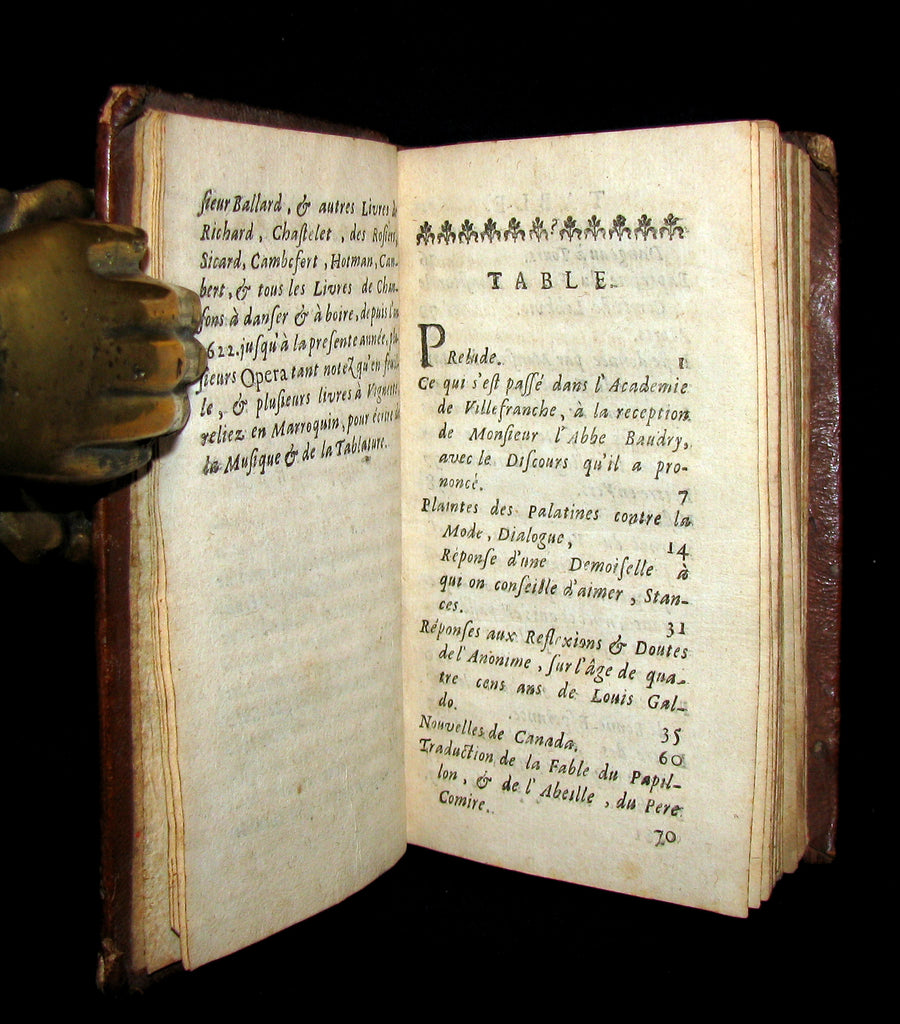 sieur Ballard, & autres Livres de
Richard, Chastelet, des Rosiers,
Sicard, Cambefort, Hotman, Cam-
bert, & tous les Livres de Chan-
sons à danser & à boire, depuis l'an
1622. jusqu'à la presente année, plu-
sieurs Opera tant notez qu'en feuil-
le, & plusieurs livres à Vignette,
reliez en Marroquin, pour écrire
la Musique & de la Tablature.
TABLE.
PRelude. 1
Ce qui s'est passé dans l'Academie
de Villefranche, à la reception
de Monsieur l'Abbe Baudry,
avec le Discours qu'il a pro-
noncé. 7
Plaintes des Palatines contre la
Mode, Dialogue, 14
Réponse d'une Demoiselle à
qui on conseille d'aimer, Stan-
ces. 31
Réponses aux Reflexions & Doutes
de l'Anonime, sur l'âge de qua-
tre cens ans de Louis Gal-
do. 35
Nouvelles de Canada. 60
Traduction de la Fable du Papil-
lon, & de l'Abeille, du Pere
Comire. 70